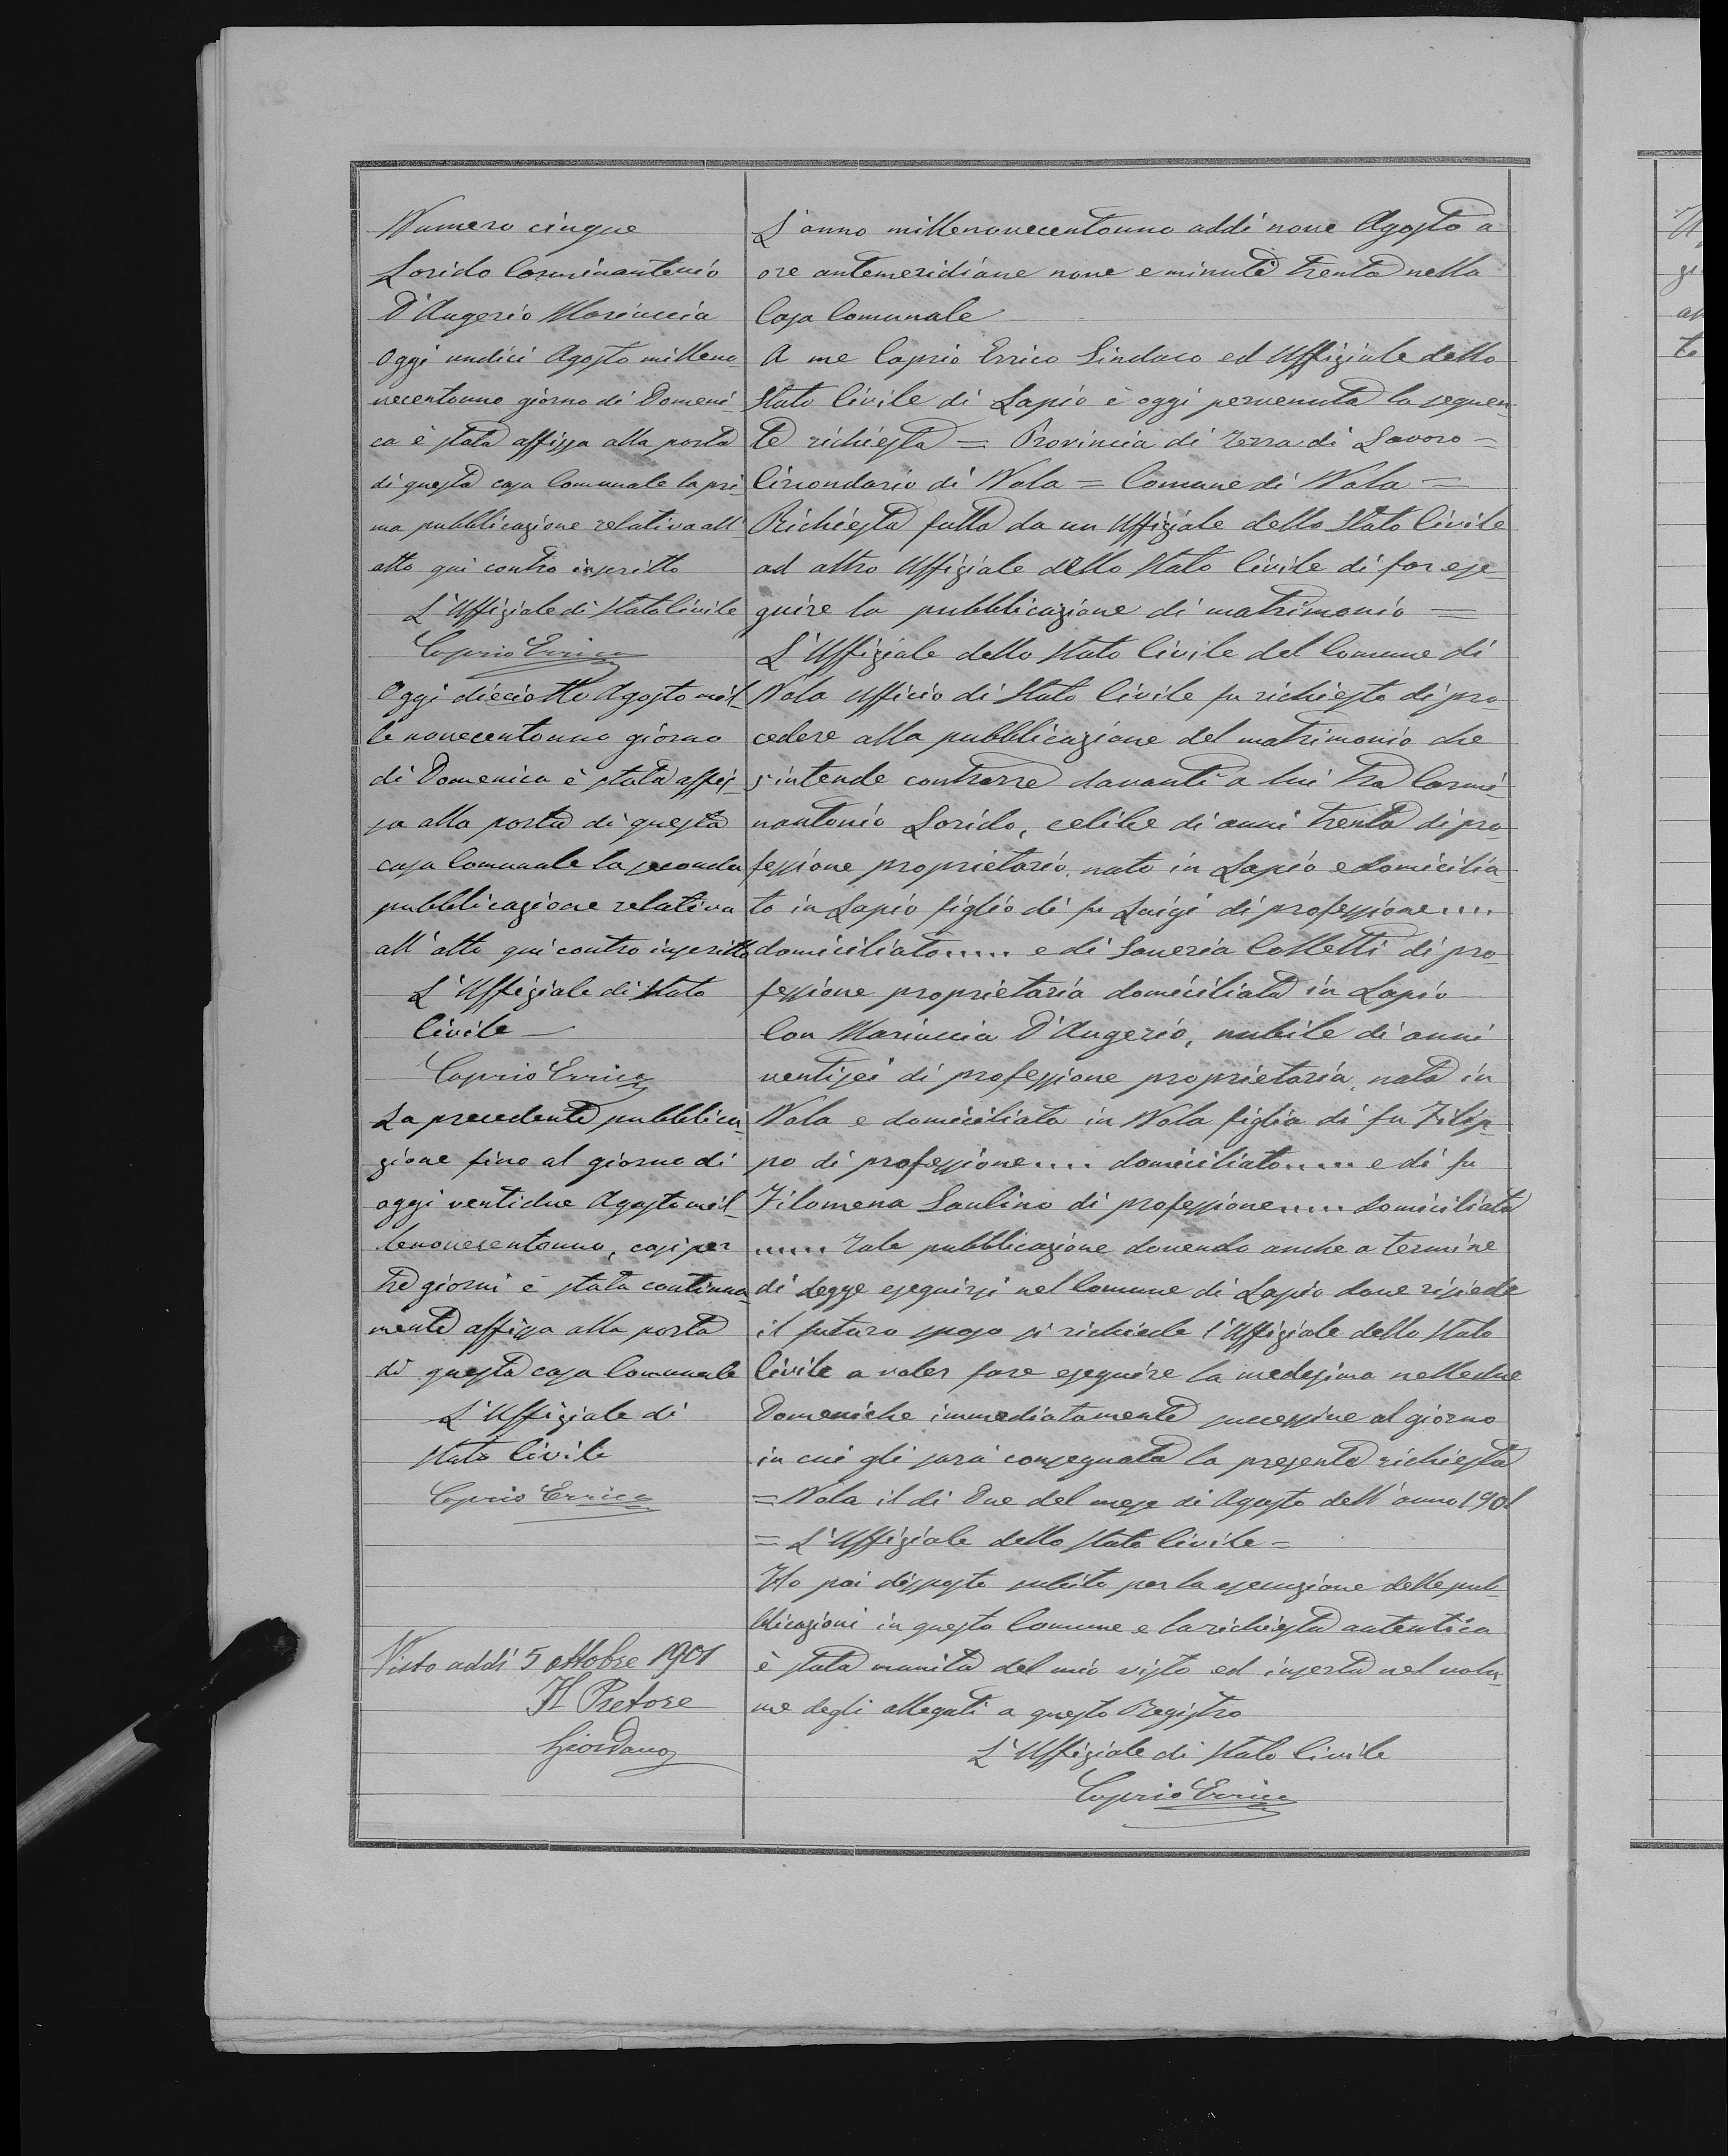 Numero cinque
Lorido Carminantonio
D'Augerio Mariuccia
Oggi undici Agosto milleno-
vecentouno giorno di Domeni-
ca è stata affissa alla porta
di questa casa Comunale la pri-
ma pubblicazione relativa all'
atto qui contro inscritto
L'Uffiziale di Stato Civile
Caprio Errico
Oggi dieciotto Agosto mil-
le novecentouno giorno
di Domenica è stata affis-
sa alla porta di questa
casa Comunale la seconda
pubblicazione relativa
all'atto qui contro inscritto
L'Uffiziale di Stato
Civile
Caprio Errico
La precedente pubblica-
zione fino al giorno di
oggi ventidue Agosto mil-
lenovecentouno, così per
tre giorni è stata continua-
mente affissa alla porta
di questa casa Comunale
L'Uffiziale di
Stato Civile
Caprio Errico
Visto addì 5 ottobre 1901
Il Pretore
Giordano
L'anno millenovecentouno addì nove Agosto a
ore antemeridiane nove e minuti trenta nella
Casa Comunale
A me Caprio Errico Sindaco ed Uffiziale dello
Stato Civile di Lapio è oggi pervenuta la seguen-
te richiesta = Provincia di Terra di Lavoro =
Circondario di Nola = Comune di Nola =
Richiesta fatta da un Uffiziale dello Stato Civile
ad altro Uffiziale dello Stato Civile di far ese-
guire la pubblicazione di matrimonio =
L'Uffiziale dello Stato Civile del Comune di
Nola Ufficio di Stato Civile fu richiesto di pro-
cedere alla pubblicazione del matrimonio che
s'intende contrarre davanti a lui tra Carmi-
nantonio Lorido, celibe di anni trenta di pro-
fessione proprietario, nato in Lapio e domicilia-
to in Lapio figlio di fu Luigi di professione....
domiciliato..... e di Saveria Colletti di pro-
fessione proprietaria domiciliata in Lapio
Con Mariuccia D'Augerio, nubile di anni
ventisei di professione proprietaria, nata in
Nola e domiciliata in Nola figlia di fu Filip-
po di professione.... domiciliato..... e di fu
Filomena Saulino di professione..... domiciliata
..... Tale pubblicazione dovendo anche a termine
di Legge eseguirsi nel Comune di Lapio dove risiede
il futuro sposo si richiede l'Uffiziale dello Stato
Civile a voler fare eseguire la medesima nelle due
Domeniche immediatamente successive al giorno
in cui gli sarà consegnata la presente richiesta
= Nola il dì Due del mese di Agosto dell'anno 1901
= L'Uffiziale dello Stato Civile =
Ho poi disposto subito per la esecuzione delle pub-
blicazioni in questo Comune e la richiesta autentica
è stata munita del mio visto ed inserta nel volu-
me degli allegati a questo Registro
L'Uffiziale di Stato Civile
Caprio Errico